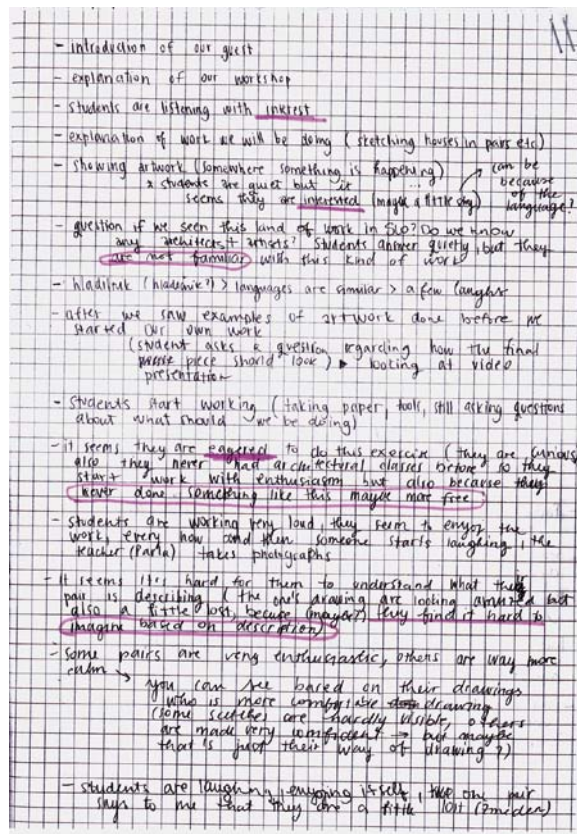 11
- introduction of our guest
- explanation of our workshop
- students are listening with interest
- explanation of work we will be doing (sketching houses in pairs etc)
- showing artwork (somewhere something is happening)
* students are quiet but it ...
seems they are interested (maybe a little shy)
can be
because
of the
language?
- question if we seen this kind of work in SLO? Do we know
any architects + artists? Students answer quietly, but they
are not familiar with this kind of work
- hladilnik (hladilnik?) > languages are similar > a few laughs
- after we saw examples of artwork done before we
started our own work
(student asks a question regarding how the final
piece should look) ▸ looking at video
presentation
- students start working (taking paper, tools, still asking questions
about what should we be doing)
- it seems they are eagered to do this exercise (they are curious
also they never had architectural classes before so they
start work with enthusiasm but also because they
never done something like this maybe more free
- students are working very loud, they seem to enjoy the
work, every now and then someone starts laughing, the
teacher takes photographs
- It seems it's hard for them to understand what their
pair is describing (the one's drawing are looking amused but
also a little lost, becuse (maybe?) they find it hard to
imagine based on description)
- some pairs are very enthusiastic, others are way more
calm → you can see based on their drawings
who is more comfortable drawing
(some scetches are hardly visible, others
are made very confident → but maybe
that is just their way of drawing?)
- students are laughing, enjoying itself, one pair
says to me that they are a little lost